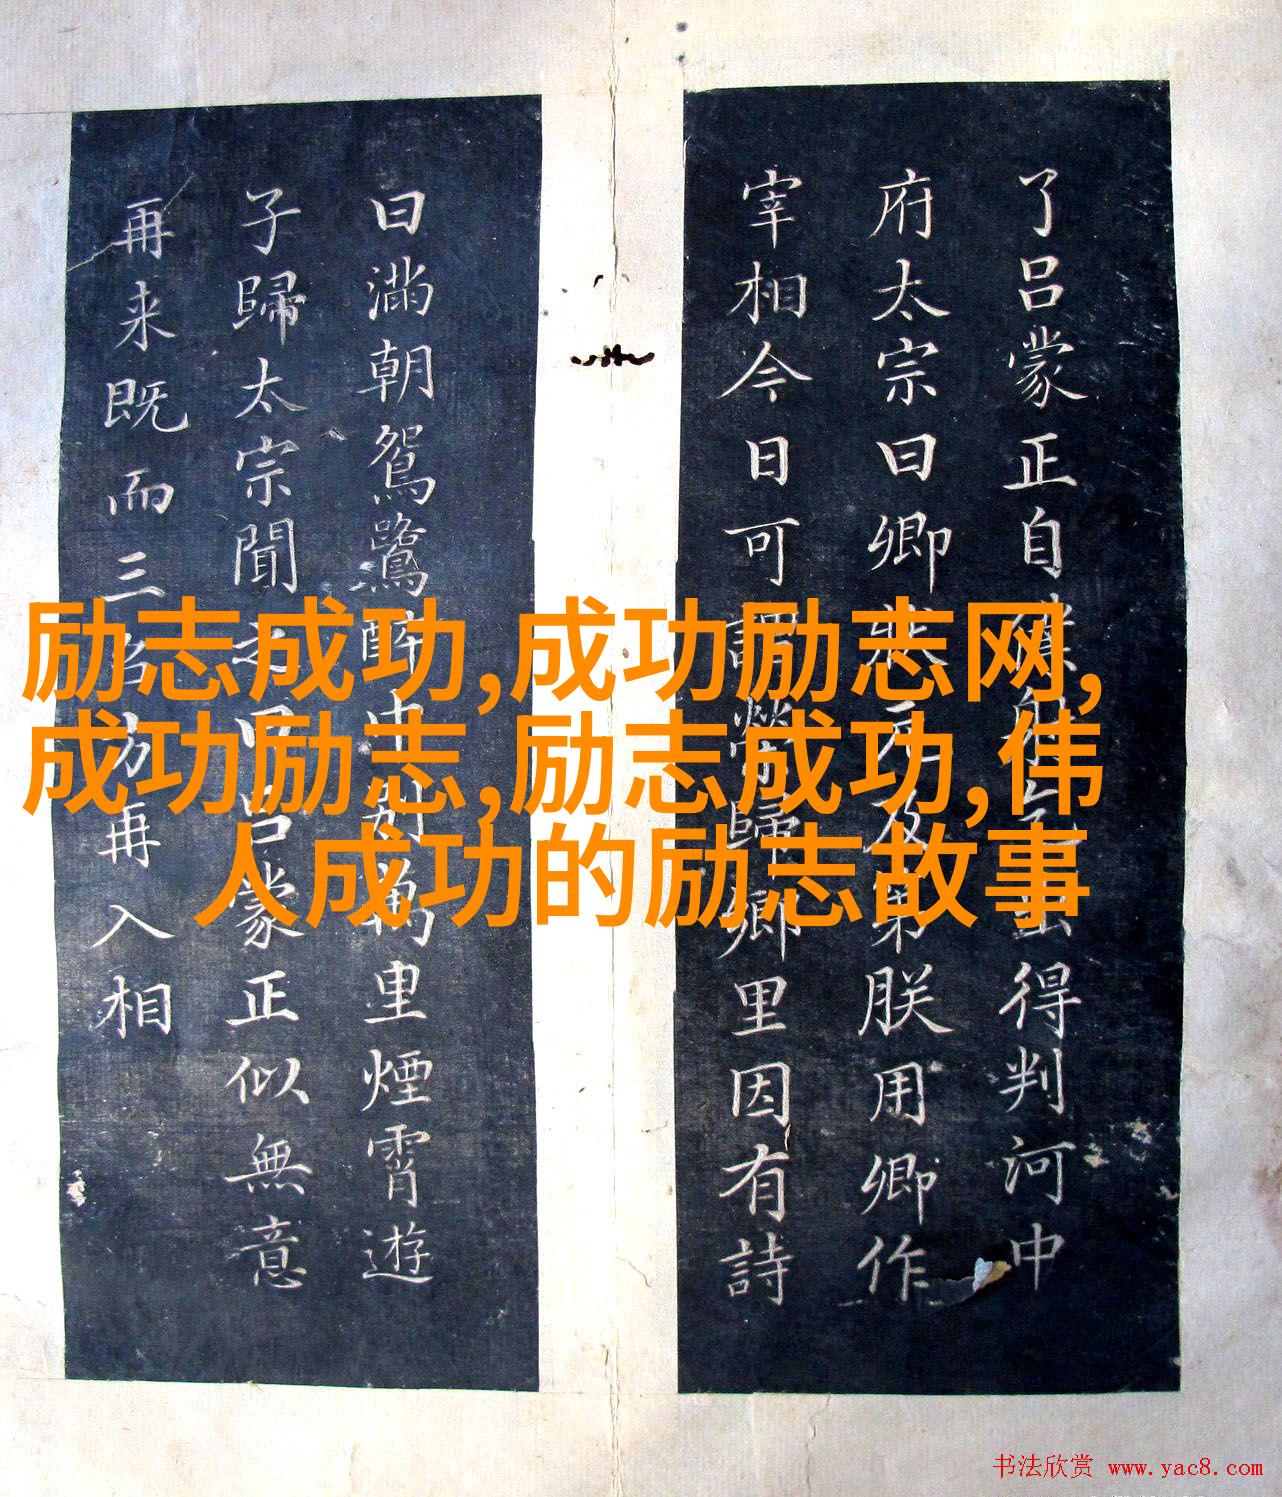 了呂蒙正自得判河中
府太宗曰卿狀元及第朕用卿作
宰相今日可謂榮歸鄉里因有詩
曰滿朝鴛鷺醉中別萬里煙霄遊
子歸太宗聞之曰呂蒙正似無意
再来既而三召方再入相
励志成功,成功励志网,
成功励志,励志成功,伟
人成功的励志故事
书法欣赏 www.yac8.com